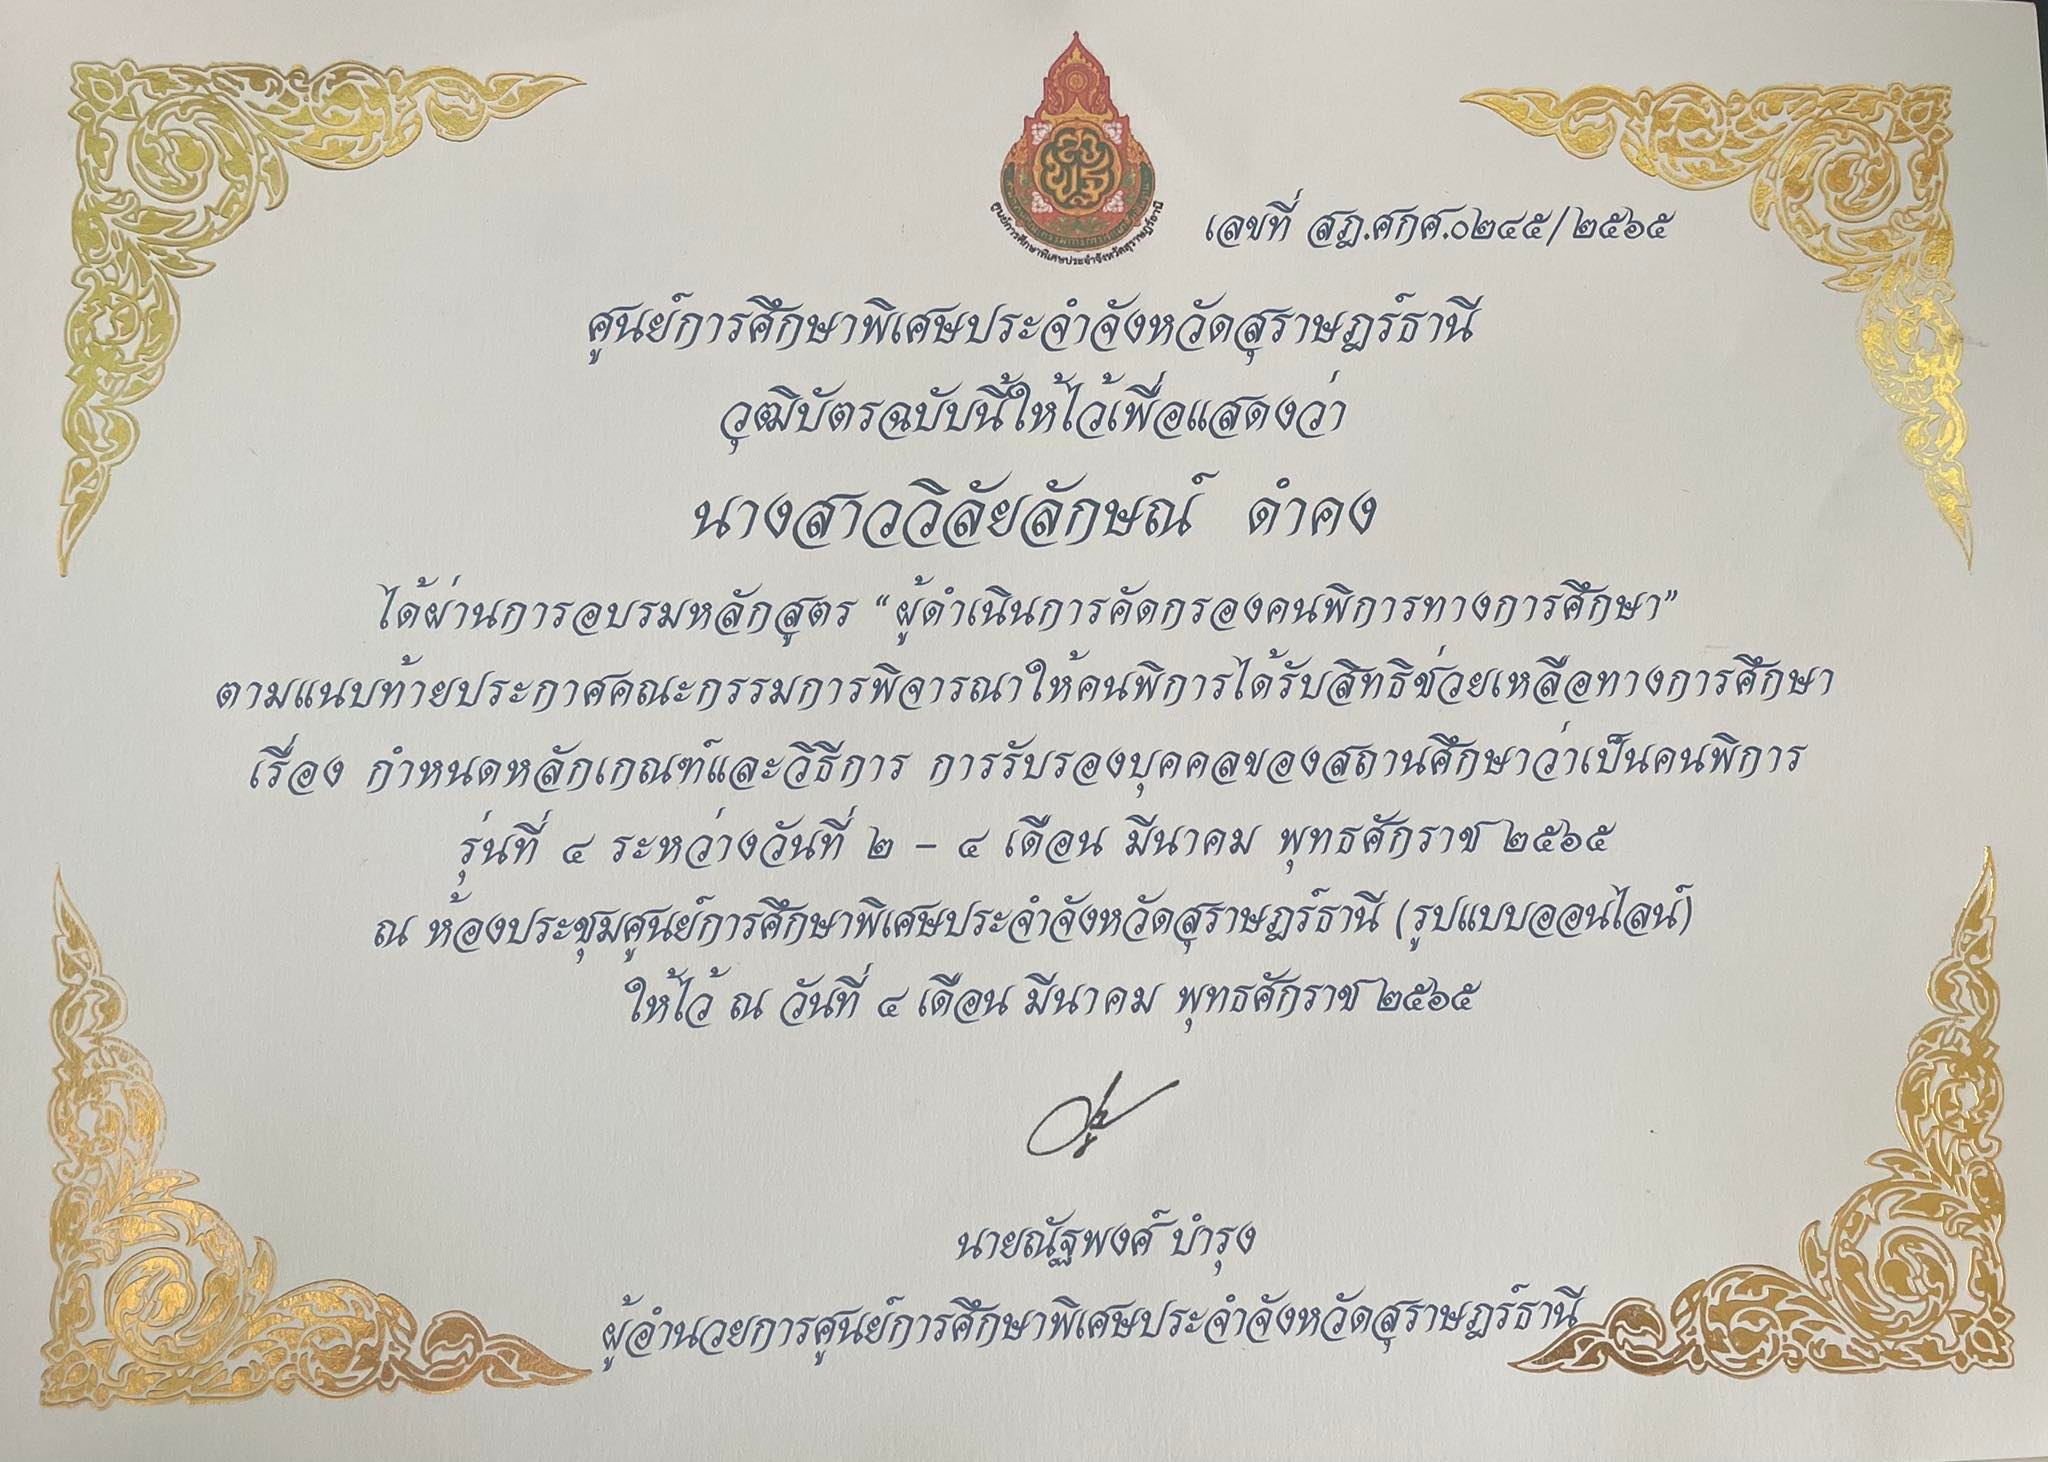 ศูนย์การศึกษาพิเศษประจำจังหวัดสุราษฎร์ธานี
เลขที่ สฎ.ศกศ.๐๒๔๕/๒๕๖๕
ศูนย์การศึกษาพิเศษประจำจังหวัดสุราษฎร์ธานี
วุฒิบัตรฉบับนี้ให้ไว้เพื่อแสดงว่า
นางสาววิลัยลักษณ์ ดำคง
ได้ผ่านการอบรมหลักสูตร “ผู้ดำเนินการคัดกรองคนพิการทางการศึกษา”
ตามแนบท้ายประกาศคณะกรรมการพิจารณาให้คนพิการได้รับสิทธิช่วยเหลือทางการศึกษา
เรื่อง กำหนดหลักเกณฑ์และวิธีการ การรับรองบุคคลของสถานศึกษาว่าเป็นคนพิการ
รุ่นที่ ๔ ระหว่างวันที่ ๒ – ๔ เดือน มีนาคม พุทธศักราช ๒๕๖๕
ณ ห้องประชุมศูนย์การศึกษาพิเศษประจำจังหวัดสุราษฎร์ธานี (รูปแบบออนไลน์)
ให้ไว้ ณ วันที่ ๔ เดือน มีนาคม พุทธศักราช ๒๕๖๕
นายณัฐพงศ์ บำรุง
ผู้อำนวยการศูนย์การศึกษาพิเศษประจำจังหวัดสุราษฎร์ธานี